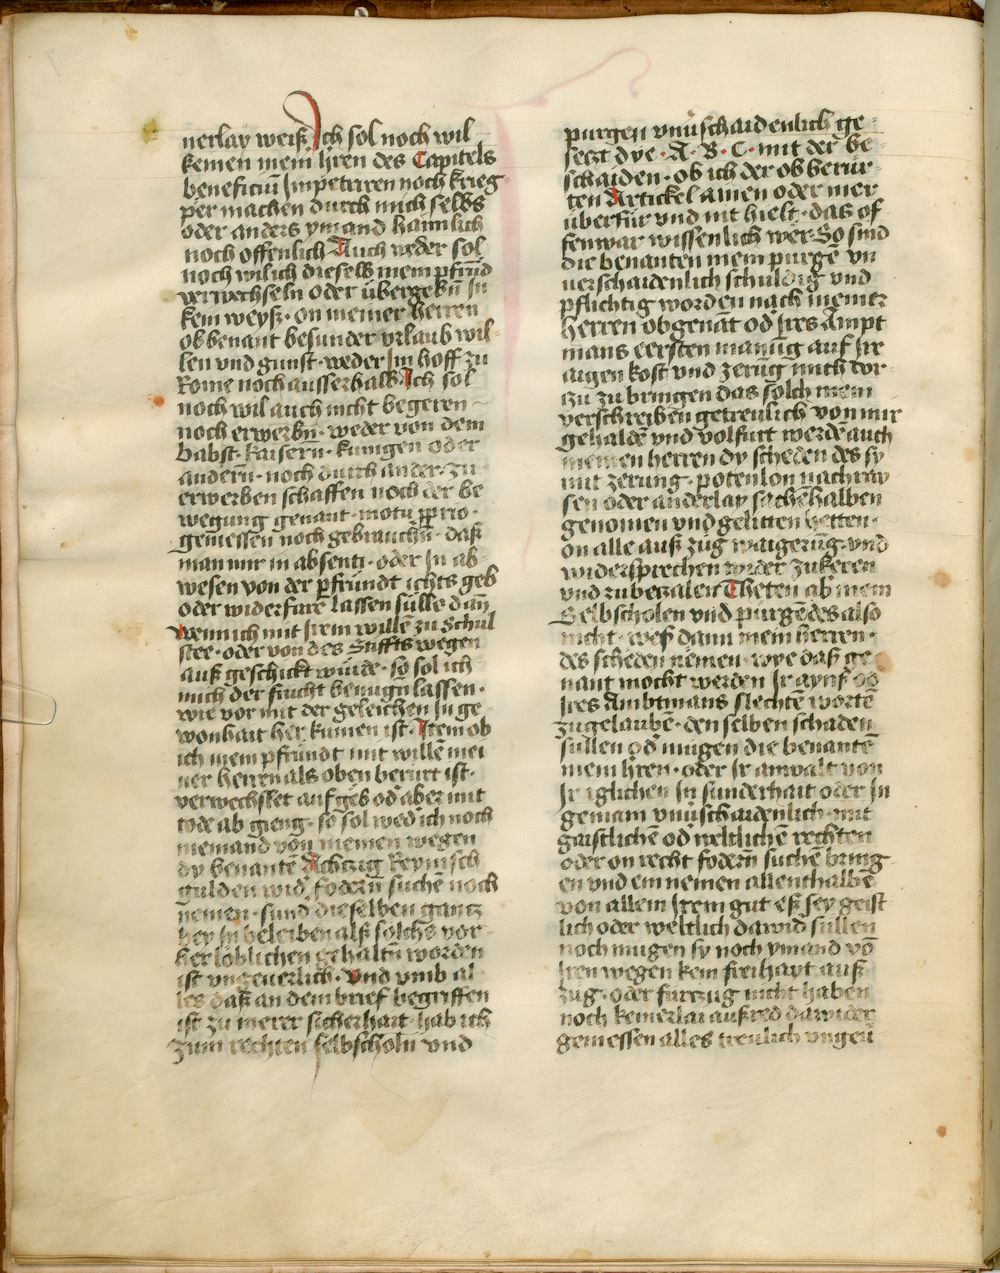 nerlay weiß Ich sol noch wil
keinen mein hren des Capitels
beneficiū Impetriren noch krieg
per machen durch mich selbs
oder anders ymand haimlich
noch offenlich Auch weder sol
noch wil ich dieselb mein pfrūd
verwechseln oder übergebn̄ Jn
kein weyß · on meiner herren
obbenant besunder vrlaub wil
len vnd gunst · weder Jm hoff zu
Rome noch ausserhalb · Ich sol
noch wil auch nicht begeren
noch erwerbn̄ · weder von dem
babst · kaisern̄ · kunigen oder
andern̄ · noch durch ander · zu
erwerben schaffen noch der be
wegung genant · motu pprio ·
geniessen noch gebrauchn̄ · daß
man mir in absenti · oder Jn ab
wesen von der pfründt ichts geb
oder widerfarē lassen sülle dañ
wenn ich mit Jrem willē zu Schul
stee · oder von des Stiffts wegen
auß geschickt würde · so sol ich
mich der frucht benugn̄ lassen ·
wie vor mit der geleichen Jn ge
wonhait her kumen ist · Item ob
ich mein pfründt mit willē mei
ner herren als oben berürt ist ·
verwechslet auf geb od' aber mit
tode ab gieng · so sol wed' ich noch
niemand von meinen wegen
dy benantē Achtzig Reynisch
gulden wid' fodern̄ suchē noch
nemen · sund' dieselben gantz
hey Jn beleiben alß solchs vor
her löblichen gehaltn̄ worden
ist vngeuerlich · Vnd vmb al
les daß an dem brief begriffen
ist zu merer sicherhait · hab ich
zum rechten selbscholn vnd
purgen vnu̓schaidenlich ge
setzt dye · A · B · C · mit der be
schaiden · ob ich der ob berür
ten Artickel ainen oder mer
überfür vnd nit hielt · das of
fenwar wissenlich wer · So sind
die benanten mein purgē vn
uerschaidenlich schuldig vnd
pflichtig worden nach meiner
herren obgenāt od' Jres Ampt
mans eersten manūg auf Jr
aigen kost vnd zerūg mich dor
zu zu bringen das solch mein
verschreiben getreulich von mir
gehaldē vnd volfürt werdē auch
meinen herren dy scheden des sy
mit zerung · potenlon nachray
sen oder anderlay sachēhalben
genomen vnd gelitten hetten ·
on alle auß züg waigerūg vnd
widersprechen wider zukeren
vnd zu bezalen Theten ab mein
Selbscholen vnd purgē des also
nicht · weß dann mein herren ·
des scheden nemen · wye daß ge
nant mocht werden Jr aynß od'
Jres Ambtmans slechtē wortē
zu gelaubē · den selben schaden
süllen od' mugen die benantē
mein hren · oder Jr anwalt von
Jr iglichen Jn sunderhait oder Jn
gemain vnu̓schaidenlich · mit
gaistlichē od' weltlichē rechten
oder on recht fodern̄ suchē bring
en vnd ein nemen allenthalbē
von allem Jrem gut eß sey geist
lich oder weltlich dawid' süllen
noch mugen sy noch ymand vō
Jren wegen kein freihayt auß
züg · oder fürczug nicht haben
noch keinerlai außred dawider
geniessen alles treulich vngeu̓